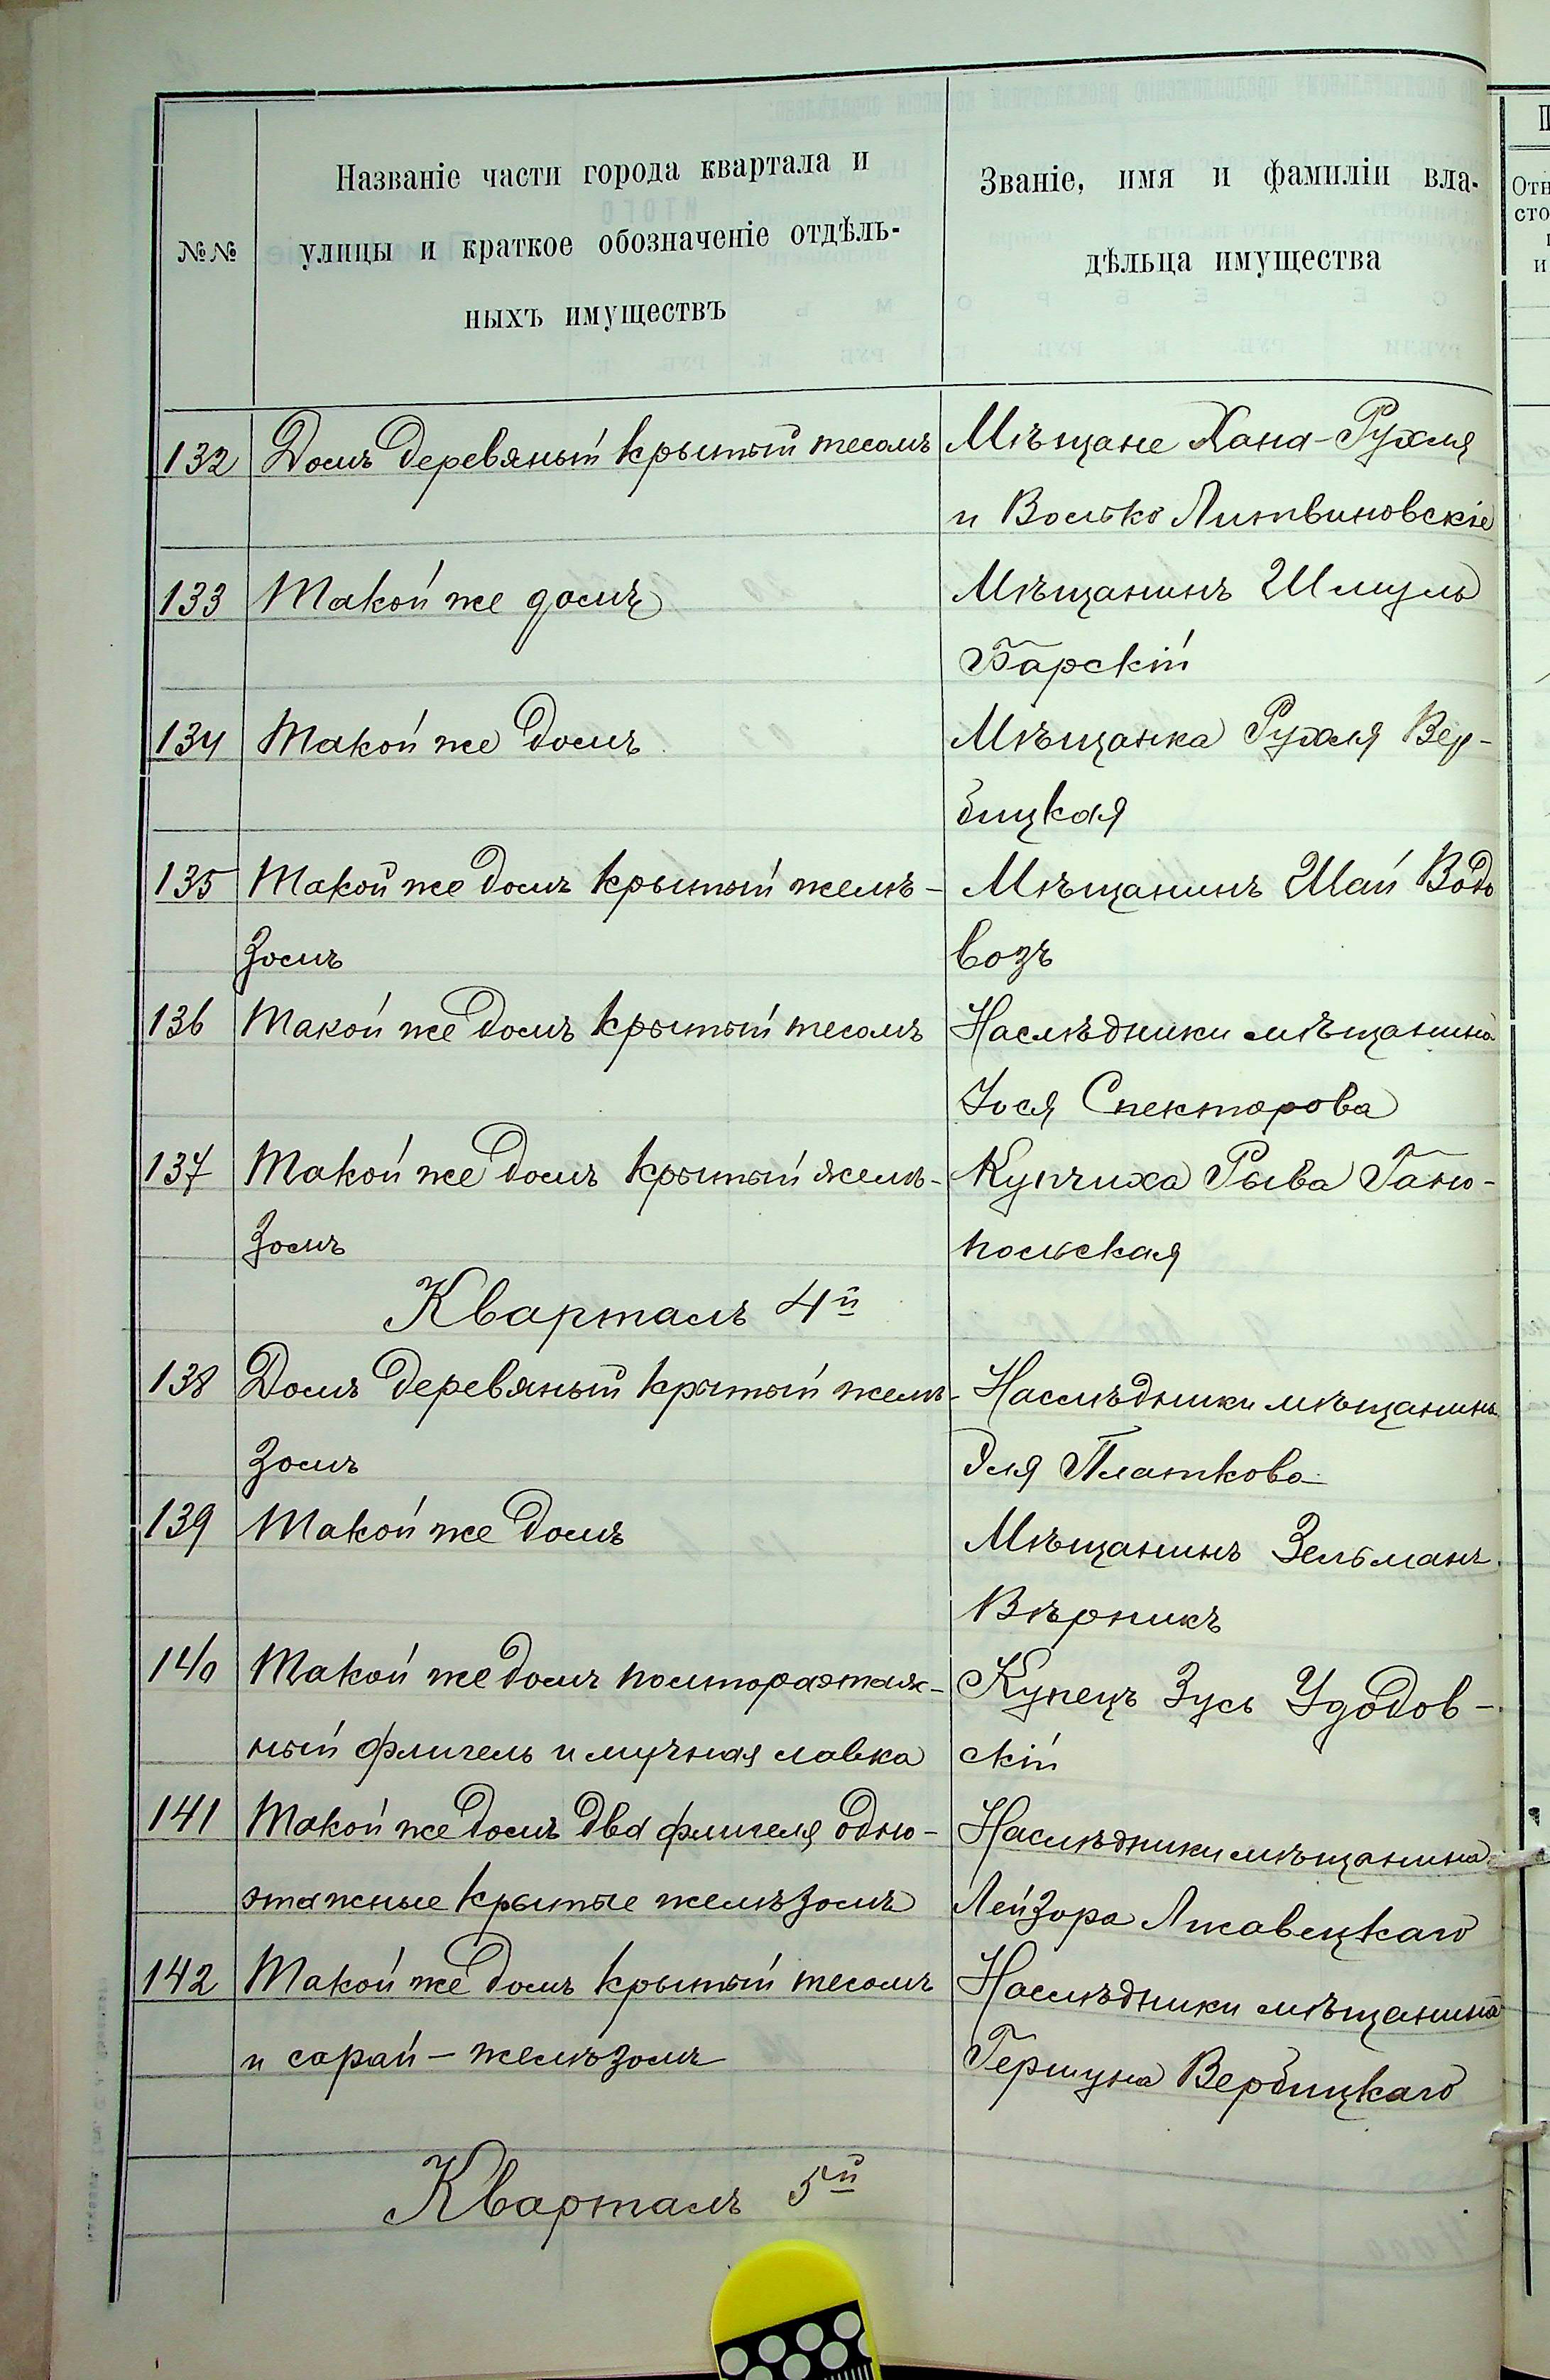 №№
Названіе части города квартала и
улицы и краткое обозначеніе отдѣль-
ныхъ имуществъ
Званіе, имя и фамиліи вла-
дѣльца имущества
132 Домъ деревяный крытый тесомъ
Мѣщане Хана-Рухля
и Волько Литвиновскіе
133 Такой же домъ
Мѣщанинъ Шмуль
Барскій
134 Такой же домъ
Мѣщанка Рухля Вер-
бицкая
135 Такой же домъ крытый желѣ-
зомъ
Мѣщанинъ Шай Водо
возъ
136 Такой же домъ крытый тесомъ
Наслѣдники мѣщанина
Іося Спекторова
137 Такой же домъ крытый желѣ-
зомъ
Купчиха Рыва Гано-
польская
Кварталъ 4й
138 Домъ деревяный крытый желѣ-
зомъ
Наслѣдники мѣщанина
Эля Платкова
139 Такой же домъ
Мѣщанинъ Зельманъ
Вѣрникъ
140 Такой же домъ полтораэтаж-
ный флигель и мучная лавка
Купецъ Зусь Удодов-
скій
141 Такой же домъ два флигеля одно-
этажные крытые желѣзомъ
Наслѣдники мѣщанина
Лейзора Лисавецкаго
142 Такой же домъ крытый тесомъ
и сарай - желѣзомъ
Наслѣдники мѣщанина
Гершуна Вербицкаго
Кварталъ 5й